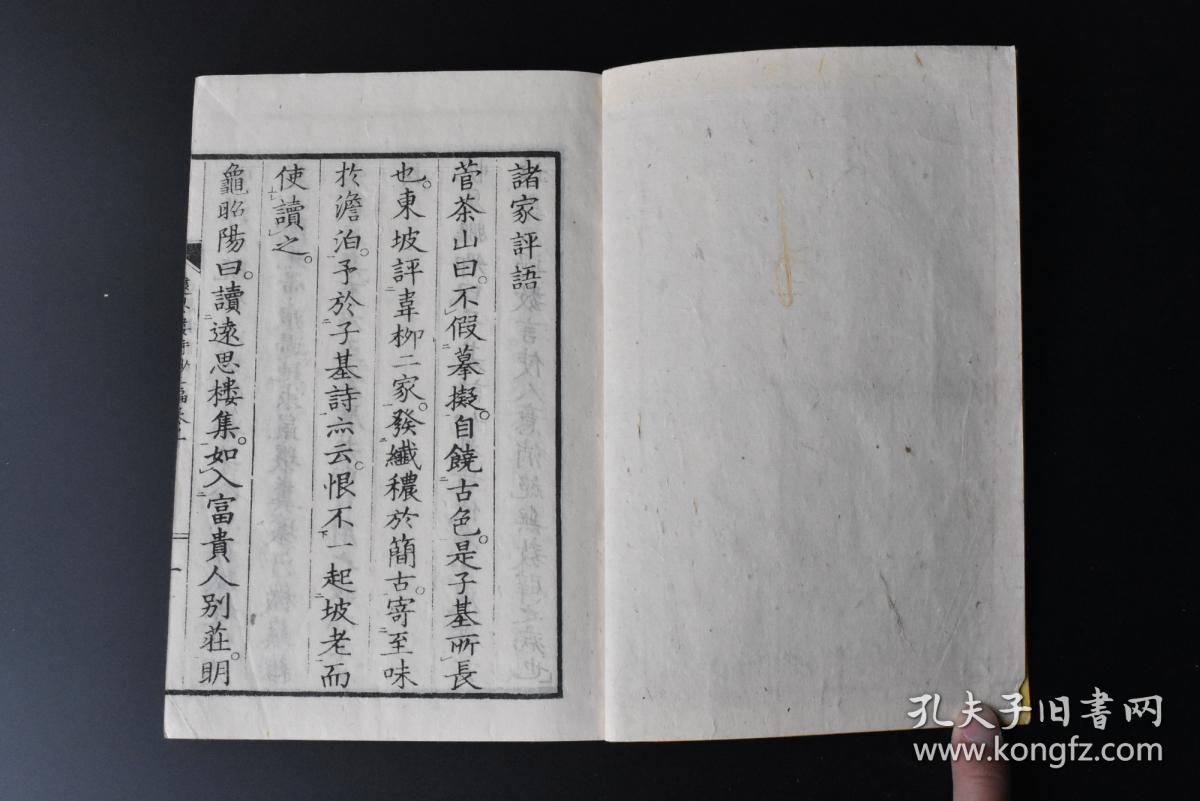 諸家評語
菅茶山曰。不假摹擬。自饒古色。是子基所長
也。東坡評韋柳二家。發纖穠於簡古。寄至味
於澹泊。予於子基詩亦云。恨不一起坡老而
使讀之。
龜昭陽曰。讀遠思樓集。如入富貴人別莊。明
遠思樓詩鈔
孔夫子旧書网
www.kongfz.com